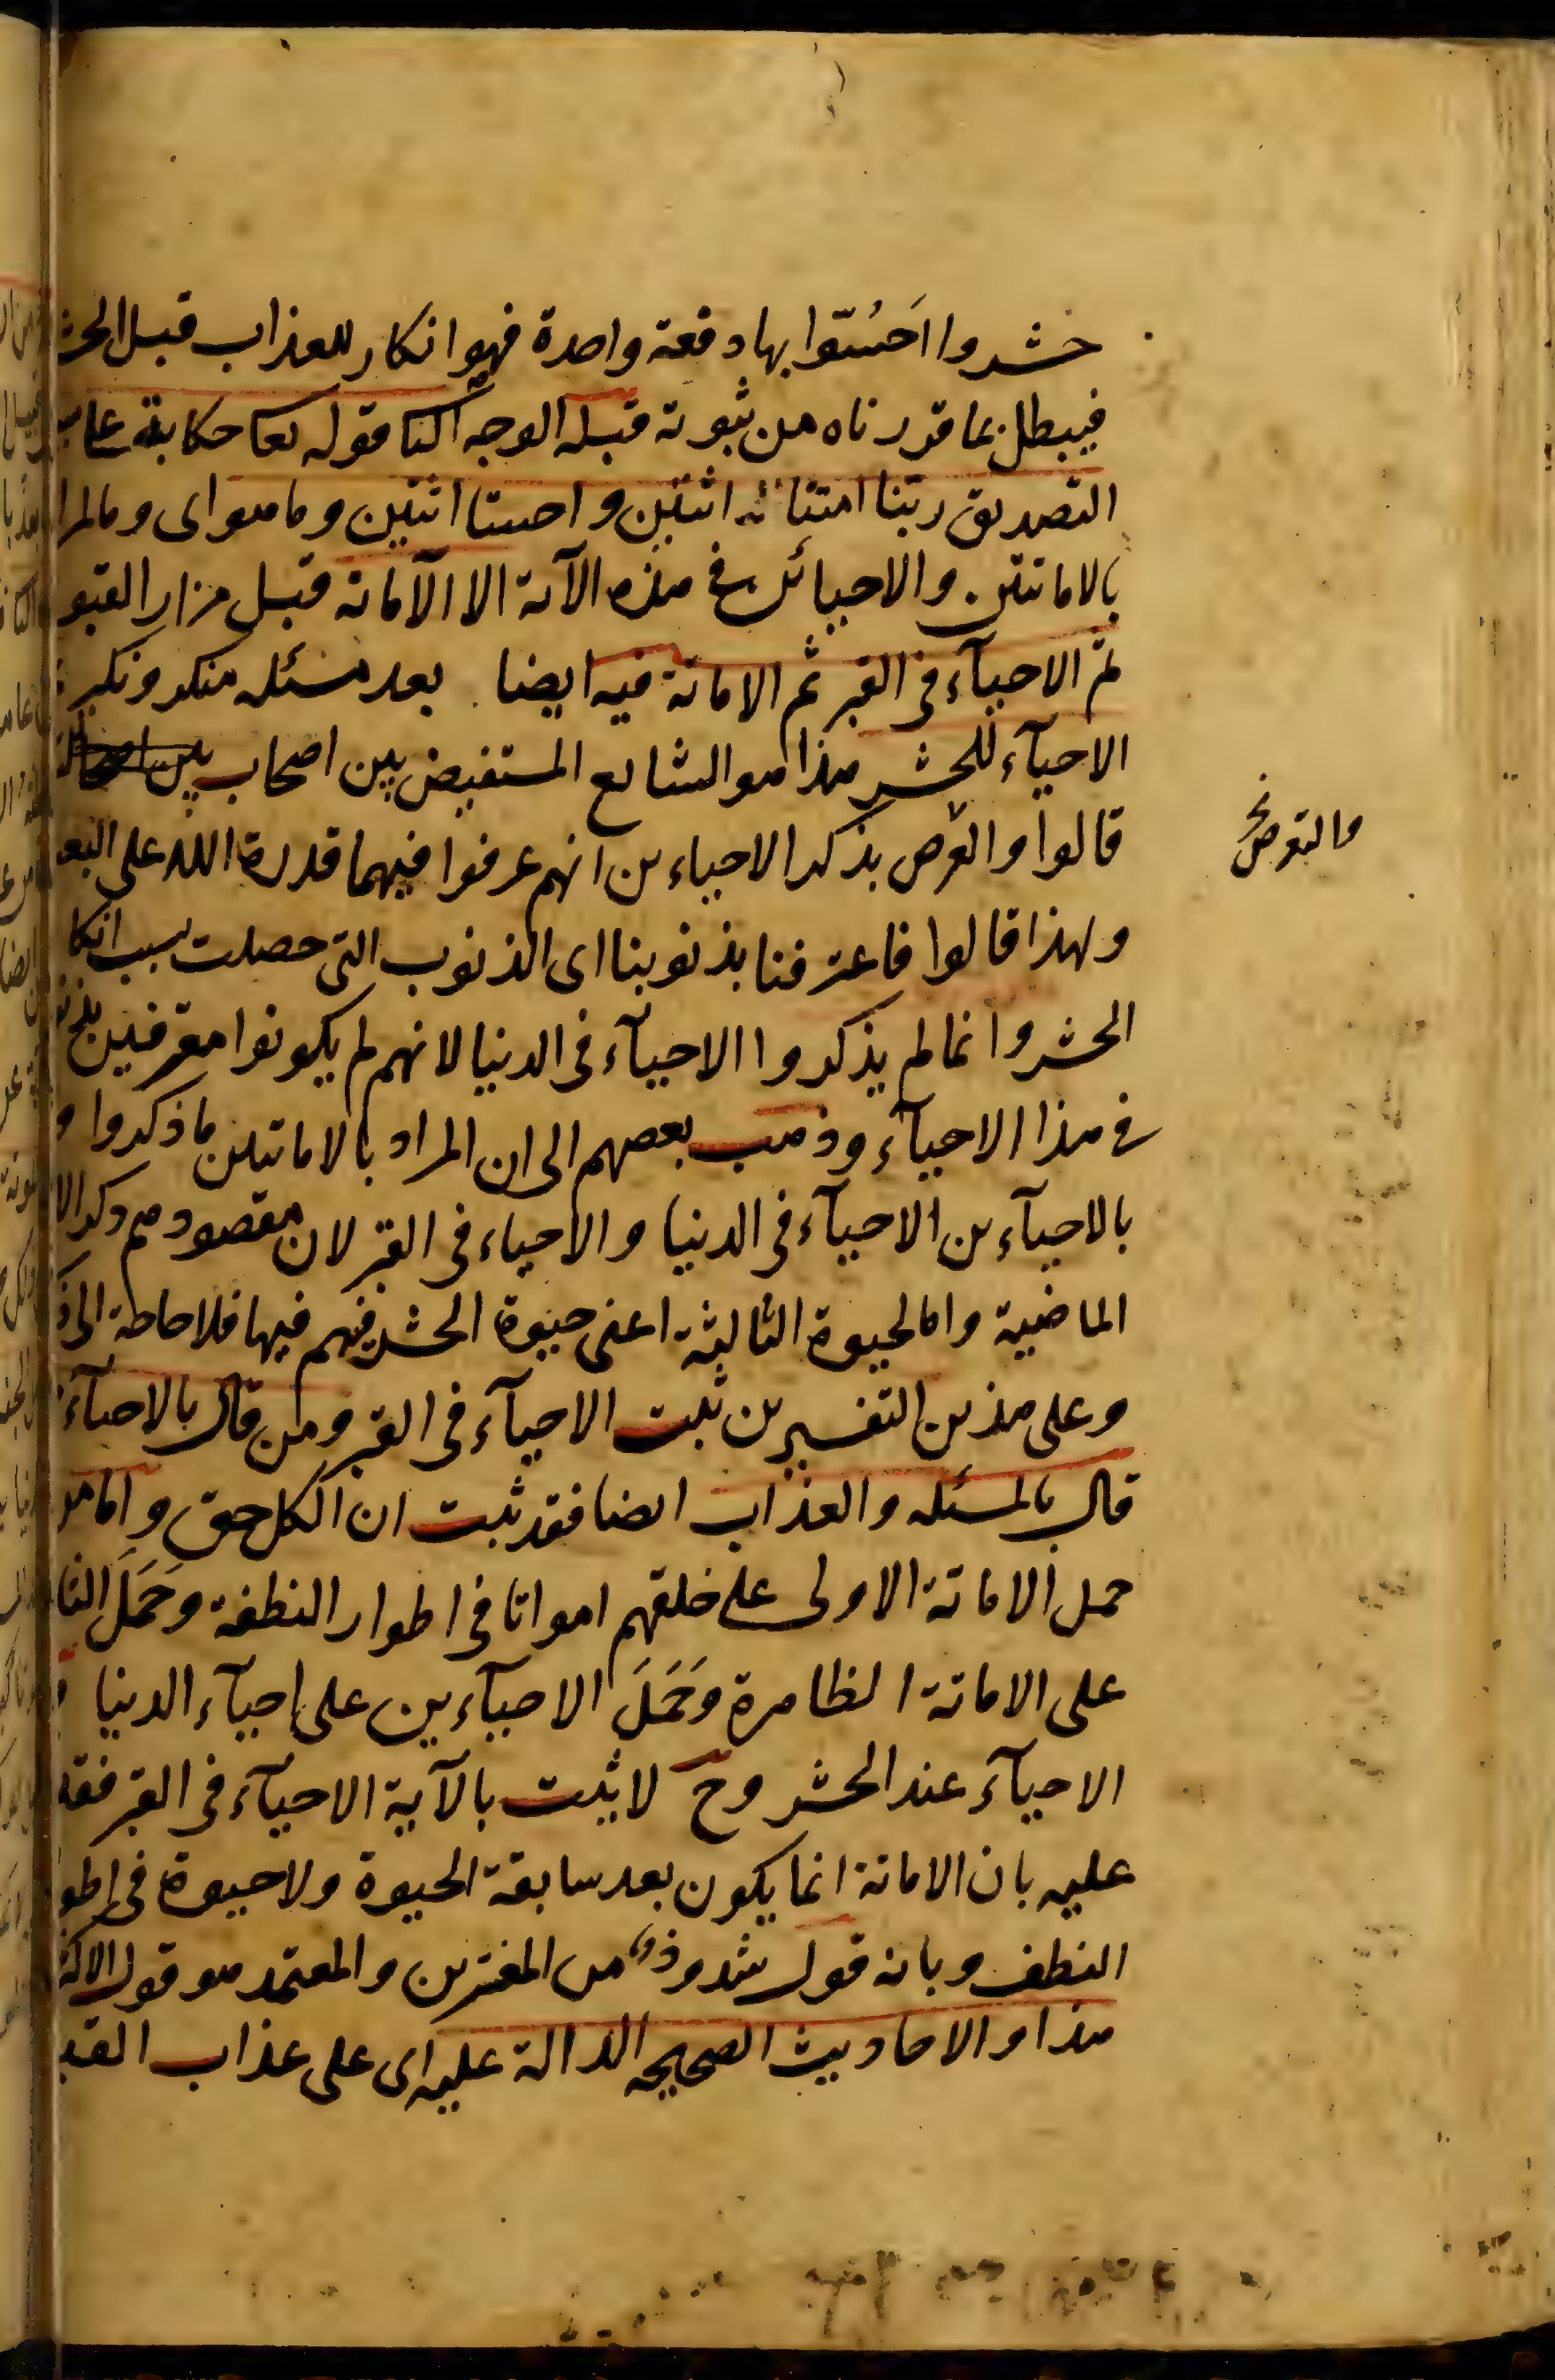 حشروا احسّوا بها دفعة واحدة فهو انكار للعذاب قبل الحشر
فيبطل بما قررناه من ثبوته قبله الوجه الثا قوله تعا حكاية على سبيل
التصديق ربّنا امتنا اثنتين واحييتنا اثنتين وما هو اى وما المراد
بالاماتتين والاحيائين فى هذه الآية الا الآماتة قبل مزار القبور
ثم الاحيآء فى القبر ثم الاماتة فيه ايضا بعد مسئله منكر ونكير
الاحيآء للحشر هذا هو الشايع المستفيض بين اصحاب
قالوا والغرض بذكر الاحياءين انهم عرفوا فيهما قدرة الله على البعث
ولهذا قالوا فاعترفنا بذنوبنا اى الذنوب التى حصلت بسبب انكار
الحشر وانما لم يذكروا الاحيآء فى الدنيا لانهم لم يكونوا معترفين
فى هذا الاحيآء وذهب بعضهم الى ان المراد بالاماتتين ما ذكروا و
بالاحيآءين الاحيآء فى الدنيا والاحياء فى القبر لان مقصودهم ذكر الا
الماضية واما الحيوة الثالثة اعنى حيوة الحشر فهم فيها فلا حاجة الى ذ
وعلى هذين التفسيرين ثبت الاحيآء فى القبر ومن قال بالاحيآء
قال بالمسئله والعذاب ايضا فقد ثبت ان الكل حق واما من
حمل الاماتة الاولى على خلقهم امواتا فى اطوار النطفة وَحَمَلَ الثا
على الاماتة الظاهرة وَحَمَلَ الاحيآءين على احيآء الدنيا و
الاحيآء عند الحشر وح لا يثبت بالآية الاحيآء فى القبر فقد
عليه بان الاماتة انما يكون بعد سابقة الحيوة ولا حيوة فى اطو
النطف وبانه قول شذوذ من المفسرين والمعتمد هو قول الاكثر
هذا والاحاديث الصحيحه الدالة عليه اى على عذاب القبر
والغرض نخ